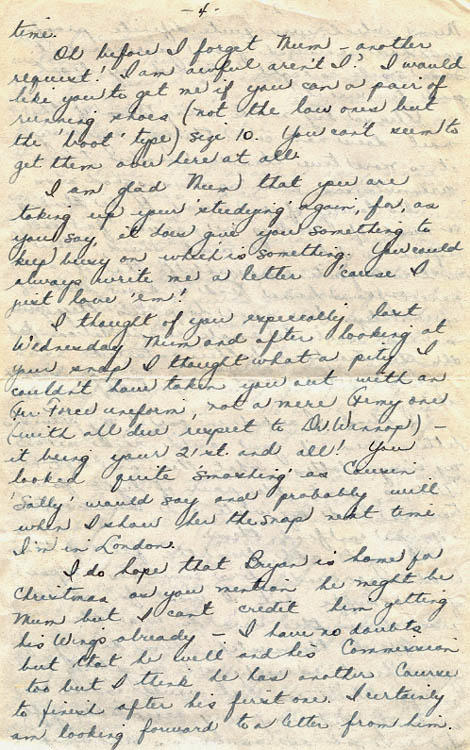 - 4 -
time.
Oh before I forget Mum - another
request! I am awful aren't I? I would
like you to get me if you can a pair of
running shoes (not the low ones but
the 'boot' type) size 10. You can't seem to
get them over here at all.
I am glad Mum that you are
taking up your 'studying' again, for, as
you say, it does give you something to
keep busy on which is something. You could
always write me a letter 'cause I
just love 'em!
I thought of you especially last
Wednesday Mum and after looking at
your snap I thought what a pity I
couldn't have taken you out with an
Air Force uniform, not a mere Army one
(with all due respect to Dr. ) -
it being your 21st. and all! You
looked quite 'smashing' as Cousin
'Sally' would say and probably will
when I show her the snap next time
I'm in London.
I do hope that Bryan is home for
Christmas as you mention he might be
Mum but I can't credit him getting
his Wings already - I have no doubts
but that he will and his Commission
too but I think he has another Course
to finish after his first one. I certainly
am looking forward to a letter from him.